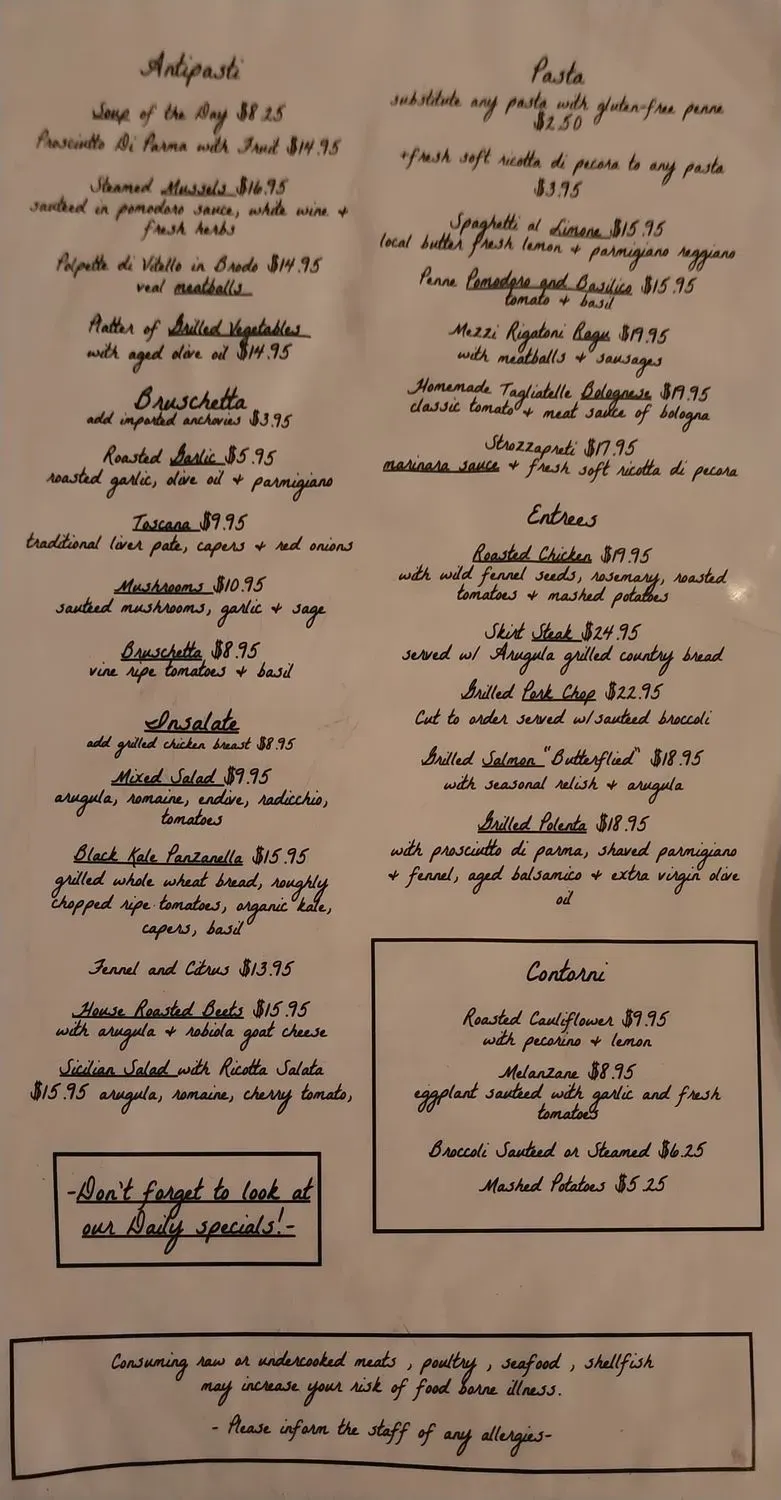 Antipasti
Soup of the Day $8.25
Prosciutto Di Parma with Fruit $14.95
Steamed Mussels $16.95
sauteed in pomodoro sauce, white wine +
fresh herbs
Polpette di Vitello in Brodo $14.95
veal meatballs
Platter of Grilled Vegetables
with aged olive oil $14.95
Bruschetta
add imported anchovies $3.95
Roasted Garlic $5.95
roasted garlic, olive oil + parmigiano
Toscana $9.95
traditional liver pate, capers + red onions
Mushrooms $10.95
sauteed mushrooms, garlic + sage
Bruschetta $8.95
vine ripe tomatoes + basil
Insalate
add grilled chicken breast $8.95
Mixed Salad $9.95
arugula, romaine, endive, radicchio,
tomatoes
Black Kale Panzanella $15.95
grilled whole wheat bread, roughly
chopped ripe tomatoes, organic kale,
capers, basil
Fennel and Citrus $13.95
House Roasted Beets $15.95
with arugula + robiola goat cheese
Sicilian Salad with Ricotta Salata
$15.95 arugula, romaine, cherry tomato,
-Don't forget to look at
our Daily specials!-
Pasta
substitute any pasta with gluten-free penne
$2.50
+fresh soft ricotta di pecora to any pasta
$3.95
Spaghetti al Limone $15.95
local butter fresh lemon + parmigiano reggiano
Penne Pomodoro and Basilico $15.95
tomato + basil
Mezzi Rigatoni Ragu $19.95
with meatballs + sausages
Homemade Tagliatelle Bolognese $19.95
classic tomato + meat sauce of bologna
Strozzapreti $17.95
marinara sauce + fresh soft ricotta di pecora
Entrees
Roasted Chicken $19.95
with wild fennel seeds, rosemary, roasted
tomatoes + mashed potatoes
Skirt Steak $24.95
served w/ Arugula grilled country bread
Grilled Pork Chop $22.95
Cut to order served w/sauteed broccoli
Grilled Salmon "Butterflied" $18.95
with seasonal relish + arugula
Grilled Polenta $18.95
with prosciutto di parma, shaved parmigiano
+ fennel, aged balsamico + extra virgin olive
oil
Contorni
Roasted Cauliflower $9.95
with pecorino + lemon
Melanzane $8.95
eggplant sauteed with garlic and fresh
tomatoes
Broccoli Sauteed or Steamed $6.25
Mashed Potatoes $5.25
Consuming raw or undercooked meats , poultry , seafood , shellfish
may increase your risk of food borne illness.
- Please inform the staff of any allergies-